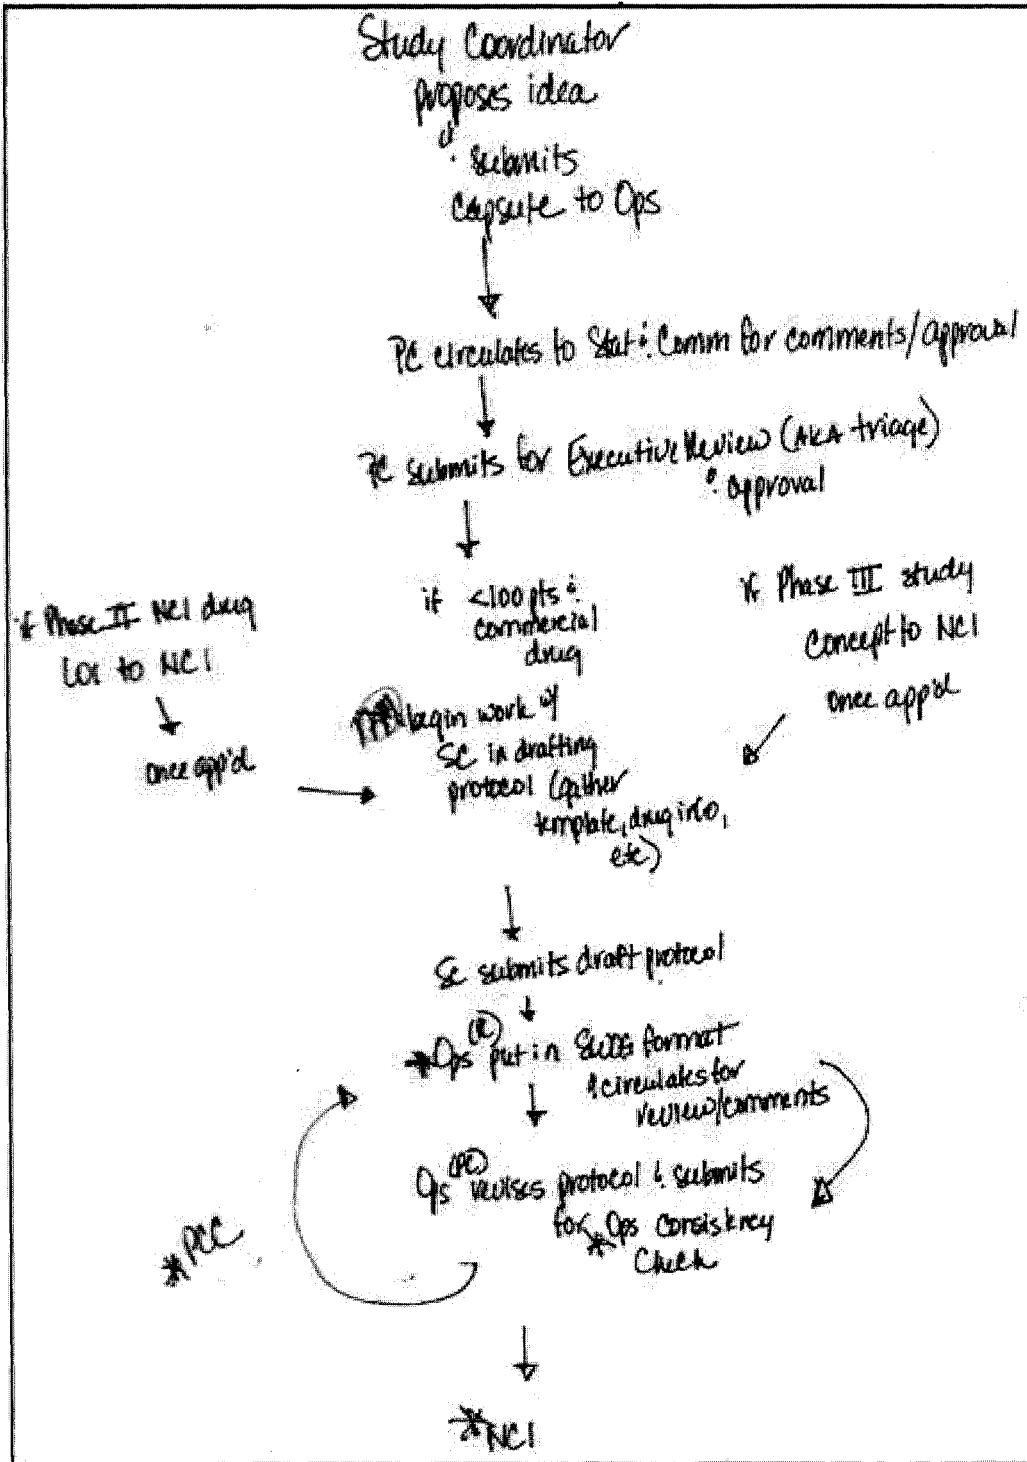 Study Coordinator
proposes idea
& submits
capsule to Ops
PC circulates to Stat & Comm for comments/approval
PC submits for Executive Review (AKA triage)
& approval
if Phase II NCI drug
LOI to NCI
once app'd
if <100 pts &
commercial
drug
if Phase III study
Concept to NCI
once app'd
begin work w/
SC in drafting
protocol (gather
template, drug info,
etc)
SC submits draft protocol
*Ops put in SWOG format
& circulates for
review/comments
Ops (PC) revises protocol & submits
for *Ops consistency
Check
*PCC
*NCI